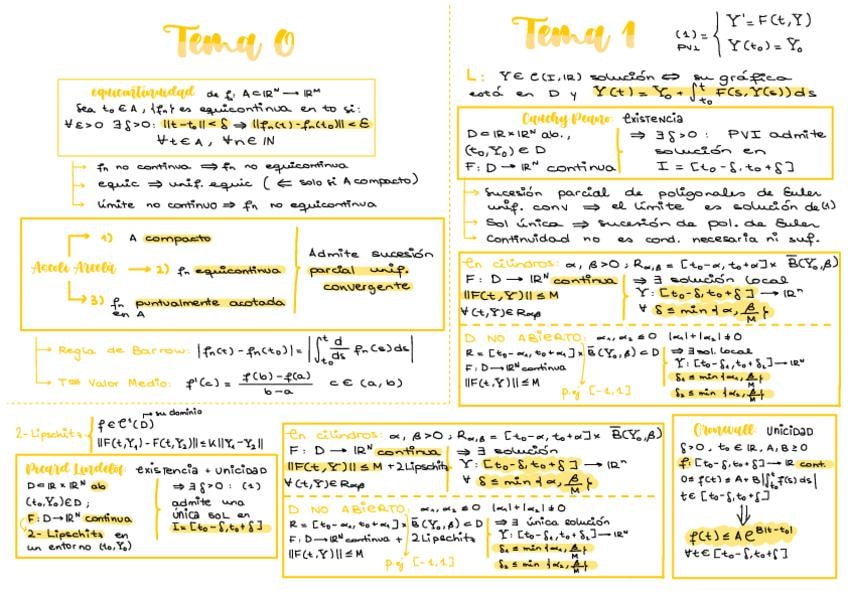 Tema 0
equicontinuidad de fₙ: A⊂ℝᴺ → ℝᴹ
Sea t₀∈A, {fₙ} es equicontinua en t₀ si:
∀ε>0 ∃δ>0: ||t-t₀||<δ ⇒ ||fₙ(t)-fₙ(t₀)||<ε
∀t∈A, ∀n∈ℕ
fₙ no continua ⇒ fₙ no equicontinua
equic ⇒ unif. equic (⇐ solo si A compacto)
límite no continuo ⇒ fₙ no equicontinua
Ascoli Arcelá
1) A compacto
2) fₙ equicontinua
3) fₙ puntualmente acotada
en A
Admite sucesión
parcial unif.
convergente
Regla de Barrow: |fₙ(t)-fₙ(t₀)| = |∫ₜ₀ᵗ d/ds fₙ(s)ds|
Tᵐᵃ Valor Medio: f'(c) = (f(b)-f(a))/(b-a) c∈(a,b)
Tema 1
(1) = { Y' = F(t,Y)
PVI Y(t₀) = Y₀
L: Y∈C(I,ℝ) solución ⇔ su gráfica
está en D y Y(t) = Y₀ + ∫ₜ₀ᵗ F(s,Y(s))ds
Cauchy Peano: existencia
D⊂ℝ×ℝᴺ ab.,
(t₀,Y₀)∈D
F: D→ℝᴺ continua
⇒ ∃δ>0: PVI admite
solución en
I = [t₀-δ, t₀+δ]
sucesión parcial de poligonales de Euler
unif. conv ⇒ el límite es solución de (1)
Sol única ⇒ sucesión de pol. de Euler
Continuidad no es cond. necesaria ni suf.
En cilindros: α, β>0; Rα,β = [t₀-α, t₀+α] × B̄(Y₀,β)
F: D→ℝᴺ continua
||F(t,Y)|| ≤ M
∀(t,Y)∈Rαβ
⇒ ∃ solución local
Y: [t₀-δ, t₀+δ] → ℝⁿ
∀ δ ≤ min{α, β/M}
D NO ABIERTO: α₁, α₂ ≤ 0 |α₁|+|α₂| ≠ 0
R = [t₀-α₁, t₀+α₂] × B̄(Y₀,β) ⊂ D
F: D→ℝᴺ continua
||F(t,Y)|| ≤ M
⇒ ∃ sol. local
Y: [t₀-δ₁, t₀+δ₂] → ℝᴺ
δ₁ ≤ min{α₁, β/M}
δ₂ ≤ min{α₂, β/M}
p.ej [-1,1]
2-Lipschitz
f∈C¹(D) su dominio
||F(t,Y₁)-F(t,Y₂)|| ≤ K||Y₁-Y₂||
Picard Lindelöf: existencia + unicidad
D⊂ℝ×ℝᴺ ab
(t₀,Y₀)∈D;
F: D→ℝᴺ continua
2-Lipschitz en
un entorno (t₀,Y₀)
⇒ ∃δ>0: (1)
admite una
única sol en
I = [t₀-δ, t₀+δ]
En cilindros: α, β>0; Rα,β = [t₀-α, t₀+α] × B̄(Y₀,β)
F: D→ℝᴺ continua
||F(t,Y)|| ≤ M + 2Lipschitz
∀(t,Y)∈Rαβ
⇒ ∃ solución
Y: [t₀-δ, t₀+δ] → ℝⁿ
∀ δ ≤ min{α, β/M}
D NO ABIERTO: α₁, α₂ ≤ 0 |α₁|+|α₂| ≠ 0
R = [t₀-α₁, t₀+α₂] × B̄(Y₀,β) ⊂ D
F: D→ℝᴺ continua + 2Lipschitz
||F(t,Y)|| ≤ M
⇒ ∃ única solución
Y: [t₀-δ₁, t₀+δ₂] → ℝᴺ
δ₁ ≤ min{α₁, β/M}
δ₂ ≤ min{α₂, β/M}
p.ej [-1,1]
Gronwall: unicidad
δ>0, t₀∈ℝ, A,B≥0
f: [t₀-δ, t₀+δ] → ℝ cont.
0 ≤ f(t) ≤ A+B|∫ₜ₀ᵗ f(s)ds|
t∈[t₀-δ, t₀+δ]
⇓
f(t) ≤ Ae^(B|t-t₀|)
∀t∈[t₀-δ, t₀+δ]